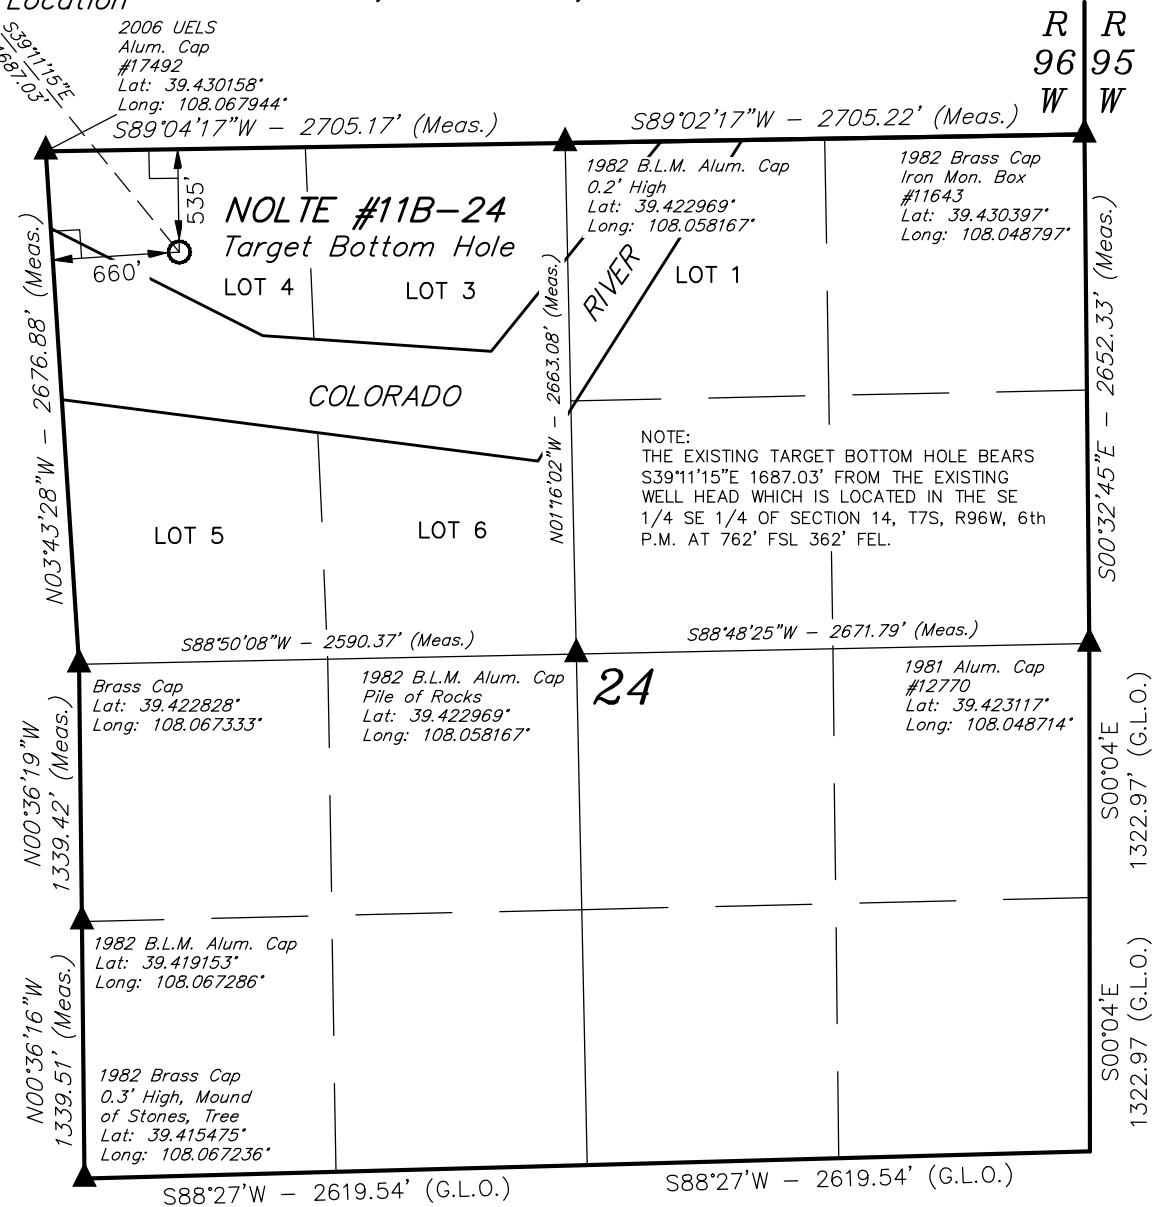 Location
S39°11'15"E
1687.03'
2006 UELS
Alum. Cap
#17492
Lat: 39.430158°
Long: 108.067944°
R R
96 95
W W
S89°04'17"W - 2705.17' (Meas.)
S89°02'17"W - 2705.22' (Meas.)
1982 B.L.M. Alum. Cap
0.2' High
Lat: 39.422969°
Long: 108.058167°
1982 Brass Cap
Iron Mon. Box
#11643
Lat: 39.430397°
Long: 108.048797°
535'
660'
NOLTE #11B-24
Target Bottom Hole
LOT 4
LOT 3
RIVER
LOT 1
COLORADO
N03°43'28"W - 2676.88' (Meas.)
N01°16'02"W - 2663.08' (Meas.)
S00°32'45"E - 2652.33' (Meas.)
NOTE:
THE EXISTING TARGET BOTTOM HOLE BEARS
S39°11'15"E 1687.03' FROM THE EXISTING
WELL HEAD WHICH IS LOCATED IN THE SE
1/4 SE 1/4 OF SECTION 14, T7S, R96W, 6th
P.M. AT 762' FSL 362' FEL.
LOT 5
LOT 6
S88°50'08"W - 2590.37' (Meas.)
S88°48'25"W - 2671.79' (Meas.)
Brass Cap
Lat: 39.422828°
Long: 108.067333°
1982 B.L.M. Alum. Cap
Pile of Rocks
Lat: 39.422969°
Long: 108.058167°
24
1981 Alum. Cap
#12770
Lat: 39.423117°
Long: 108.048714°
N00°36'19"W
1339.42' (Meas.)
S00°04'E
1322.97' (G.L.O.)
1982 B.L.M. Alum. Cap
Lat: 39.419153°
Long: 108.067286°
N00°36'16"W
1339.51' (Meas.)
S00°04'E
1322.97 (G.L.O.)
1982 Brass Cap
0.3' High, Mound
of Stones, Tree
Lat: 39.415475°
Long: 108.067236°
S88°27'W - 2619.54' (G.L.O.)
S88°27'W - 2619.54' (G.L.O.)